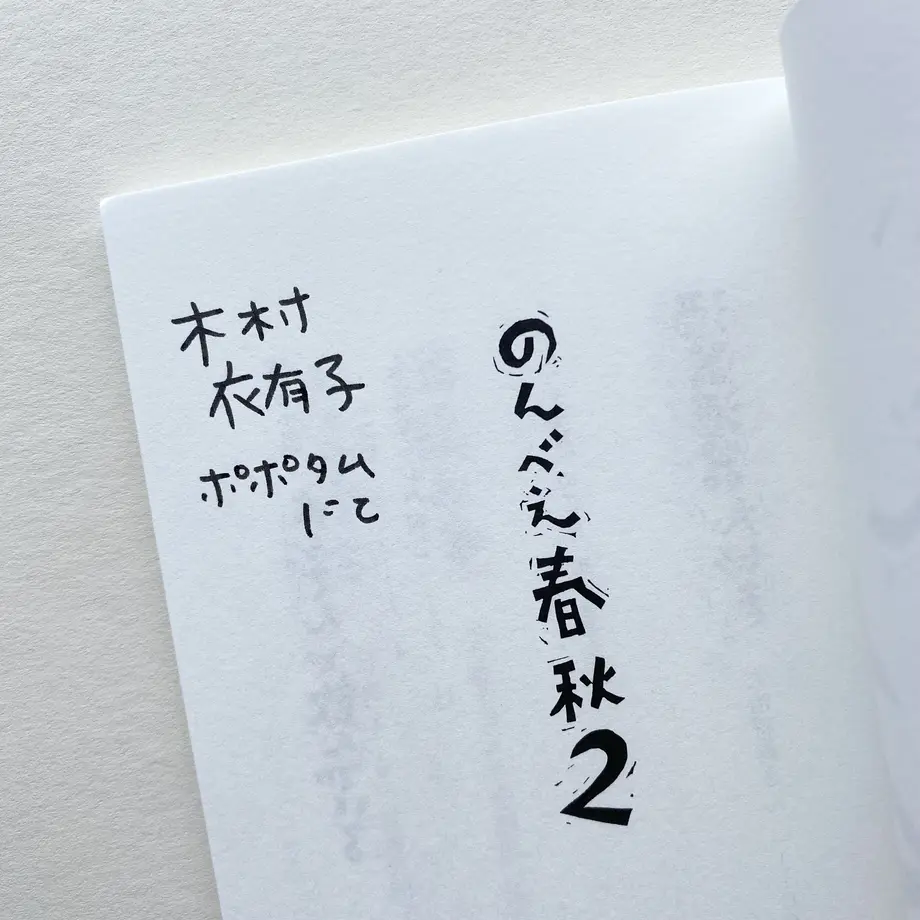 のんべえ春秋2
木村
衣有子
ポポタム
にて